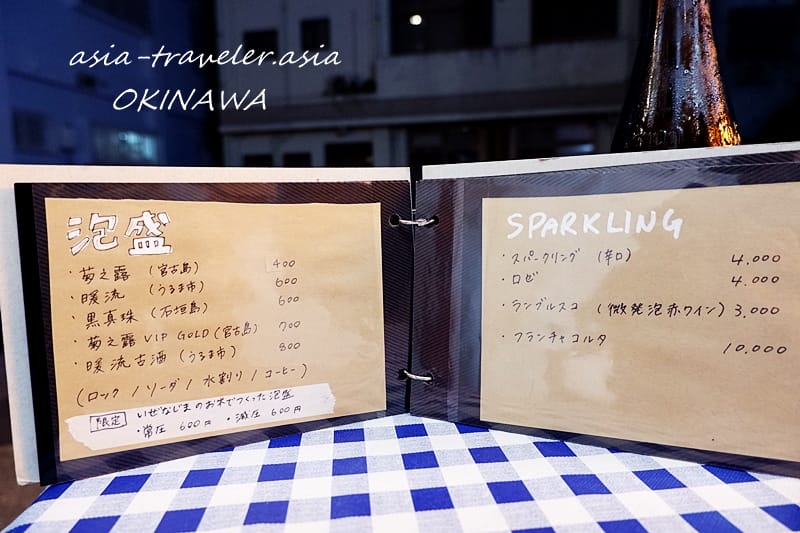 asia-traveler.asia
OKINAWA
泡盛
・菊之露 (宮古島) 400
・暖流 (うるま市) 600
・黒真珠 (石垣島) 600
・菊之露 VIP GOLD (宮古島) 700
・暖流古酒 (うるま市) 800
(ロック / ソーダ / 水割り / コーヒー)
限定 いぜなじまのお米でつくった泡盛
・常圧 600円 ・減圧 600円
SPARKLING
・スパークリング (辛口) 4,000
・ロゼ 4,000
・ランブルスコ (微発泡赤ワイン) 3,000
・フランチャコルタ 10,000